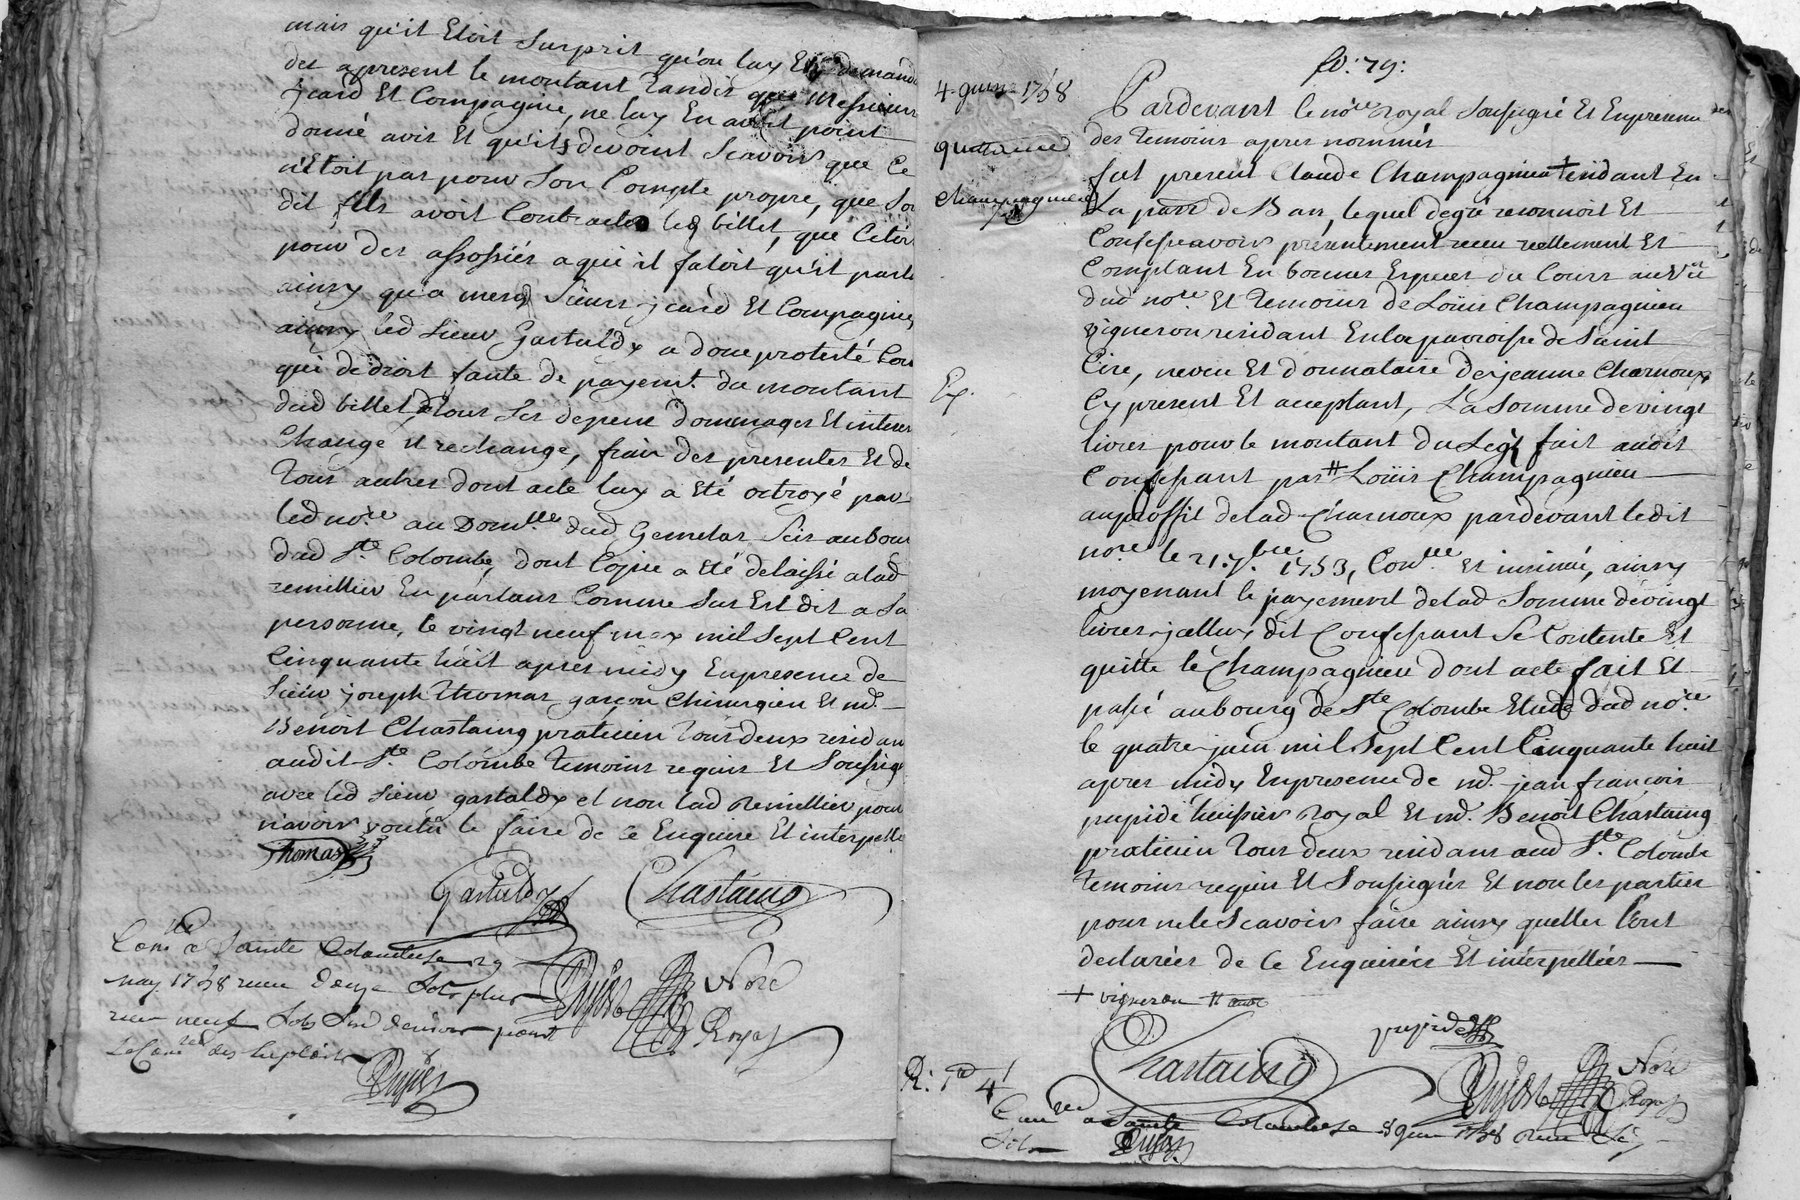 mais qu'il Etoit surprit qu'on luy En demand
des apresent le montant tandis que Messieurs
jcard Et Compagnie, ne luy En avoit point
donné avis Et qu'ils devoint Scavoir que Ce
n'Etoit pas pour Son Compte propre, que Son
dit fils avoit Contracté led billet, que C'etoit
pour des assossiés a qui il faloit qu'il parle
ainsy qu'a mesd Sieurs jcard Et Compagnie,
ainsy led Sieur Gastaldy a donc protesté Con
qui de droit faute de payemt. du montant
dud billet, de tous Ses depens dommages Et interes
Change Et rechange, frais des presentes Et de
Tous autres dont acte luy a Eté octroyé par
led nore. au Domlle dud Gemelas Scis au bour
dud Ste. Colombe, dont Copie a Eté delaissé a lad
remillier En parlant Comme Sus Est dit a Sa
personne, le vingt neuf may mil Sept Cent
Cinquante huit apres midy En presence de
Sieur joseph Thomas garçon Chirurgien Et md.
Benoit Chastaing praticien Tous deux residan
audit Ste Colombe temoins requis Et Soussig
avec led Sieur gastaldy et non lad Remillier pour
n'avoir voulu le faire de Ce Enquise Et interpellé
Thomas
Gastaldy Chastaing
Conlé a Sainte Colombe 29
may 1758 reçu douze Sols plus
reçu neuf Sols Sur
Le Conle des Exploits
Dujast Nore
Royal
Dujast
fo: 79:
4. juin 1758
quittance
Champagnieu
Pardevant le nore royal Soussigné Et En presence
des temoins apres nommés
fut present Claude Champagnieu + residant En
La parre de Ban, lequel de gré reconnoit Et
Confesse avoir présentement reçu reellement Et
Comptant En bonnes Especes du Cours au Vu
dud nore. Et temoins de Loüis Champagnieu
vigneron residant En la parroisse de Saint
Cire, neveu Et donnataire de jeanne Charnoux
Ex.
Cy present Et acceptant, La Somme de vingt
livres pour le montant du Legs fait audit
Confessant par # Loüis Champagnieu
au proffit de lad Charnoux pardevant ledit
nore le 21. 7bre 1753, Conlé. Et insinué, ainsy
moyenant le payement de lad Somme de vingt
livres jcelluy dit Confessant Se Contente Et
quitte le Champagnieu dont acte fait Et
passé au bourg de Ste Colombe Etude dud nore
le quatre juin mil Sept Cent Cinquante huit
apres midy En presence de md. jean françois
pupide huissier royal Et md. Benoit Chastaing
praticien Tous deux residans aud Ste. Colombe
temoins requis Et Soussignés Et non les parties
pour ne le Scavoir faire ainsy quelles l'ont
declarées de Ce Enquisées Et intérpellées
+ vigneron # autre
pupide
Chastaing
Dujast Nore
Royal
R:
Conlé a Sainte Colombe 8 juin 1758 reçu
Sols
Dujast